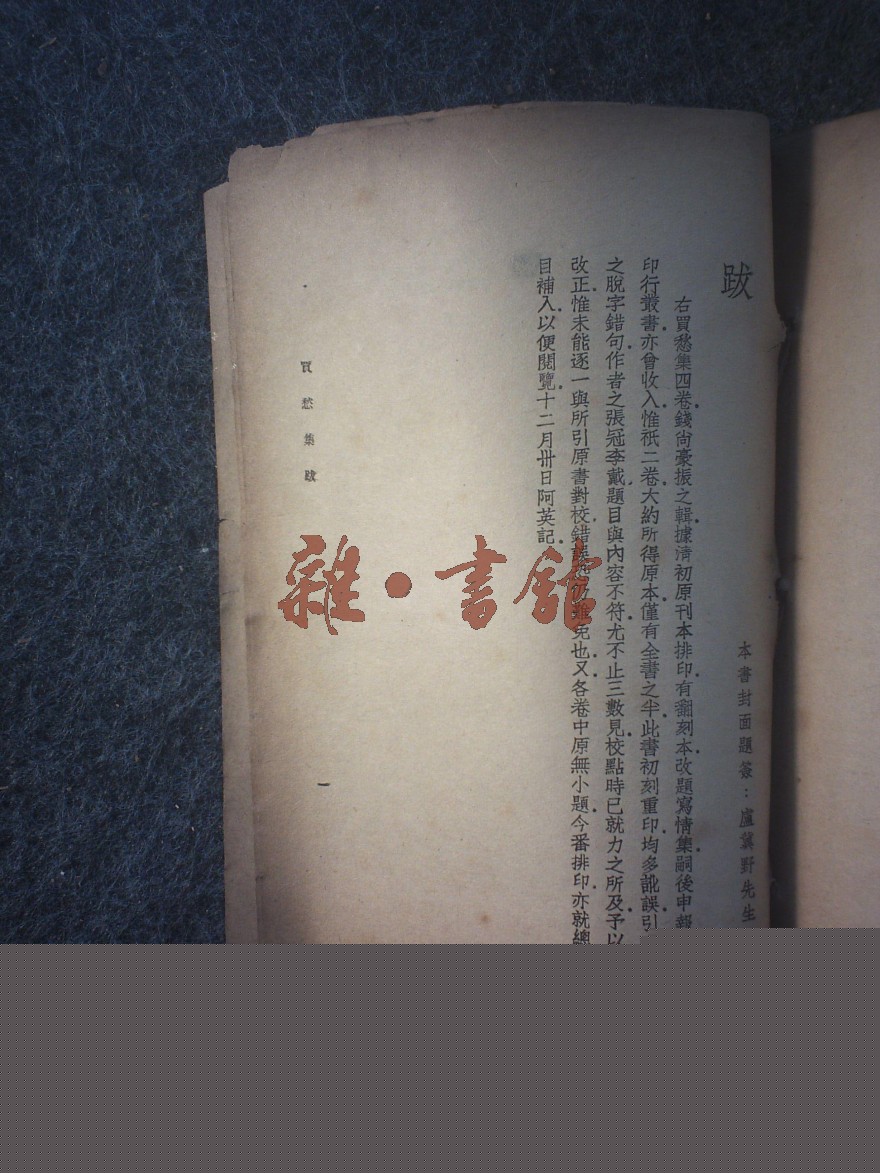 跋
本書封面題簽：盧冀野先生
右買愁集四卷錢尙豪振之輯據淸初原刊本排印有翻刻本改題寫情集嗣後申報
印行叢書亦曾收入惟祇二卷大約所得原本僅有全書之半此書初刻重印均多訛誤引
之脫字錯句作者之張冠李戴題目與內容不符尤不止三數見校點時已就力之所及予以
改正惟未能逐一與所引原書對校錯誤仍難免也又各卷中原無小題今番排印亦就總
目補入以便閱覽十二月卅日阿英記
買愁集跋
一
雜·書館